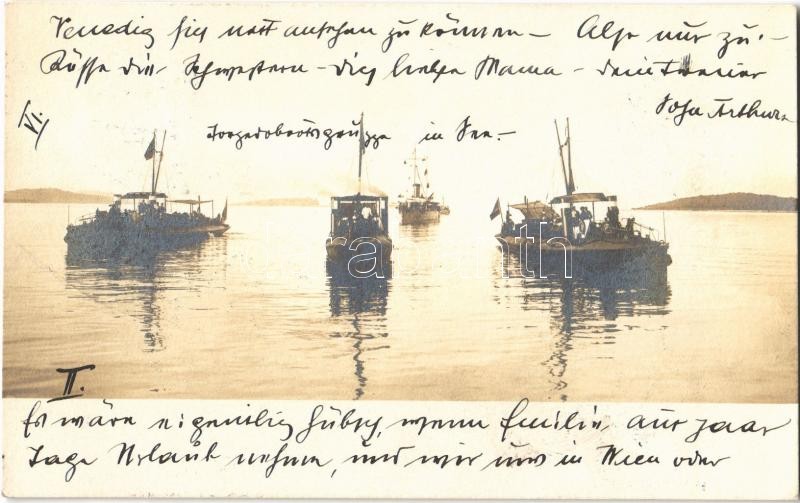 Venedig hier nett ansehen zu können – Also nur zu! –
Küsse die Schwestern – Dich liebste Mama – dein treuer
Sohn Arthur
VI.
Torpedobootsgruppe in See. –
darabanth
II.
Es wäre eigentlich hübsch, wenn Emilie ein paar
Tage Urlaub nehme, und wir uns in Wien oder